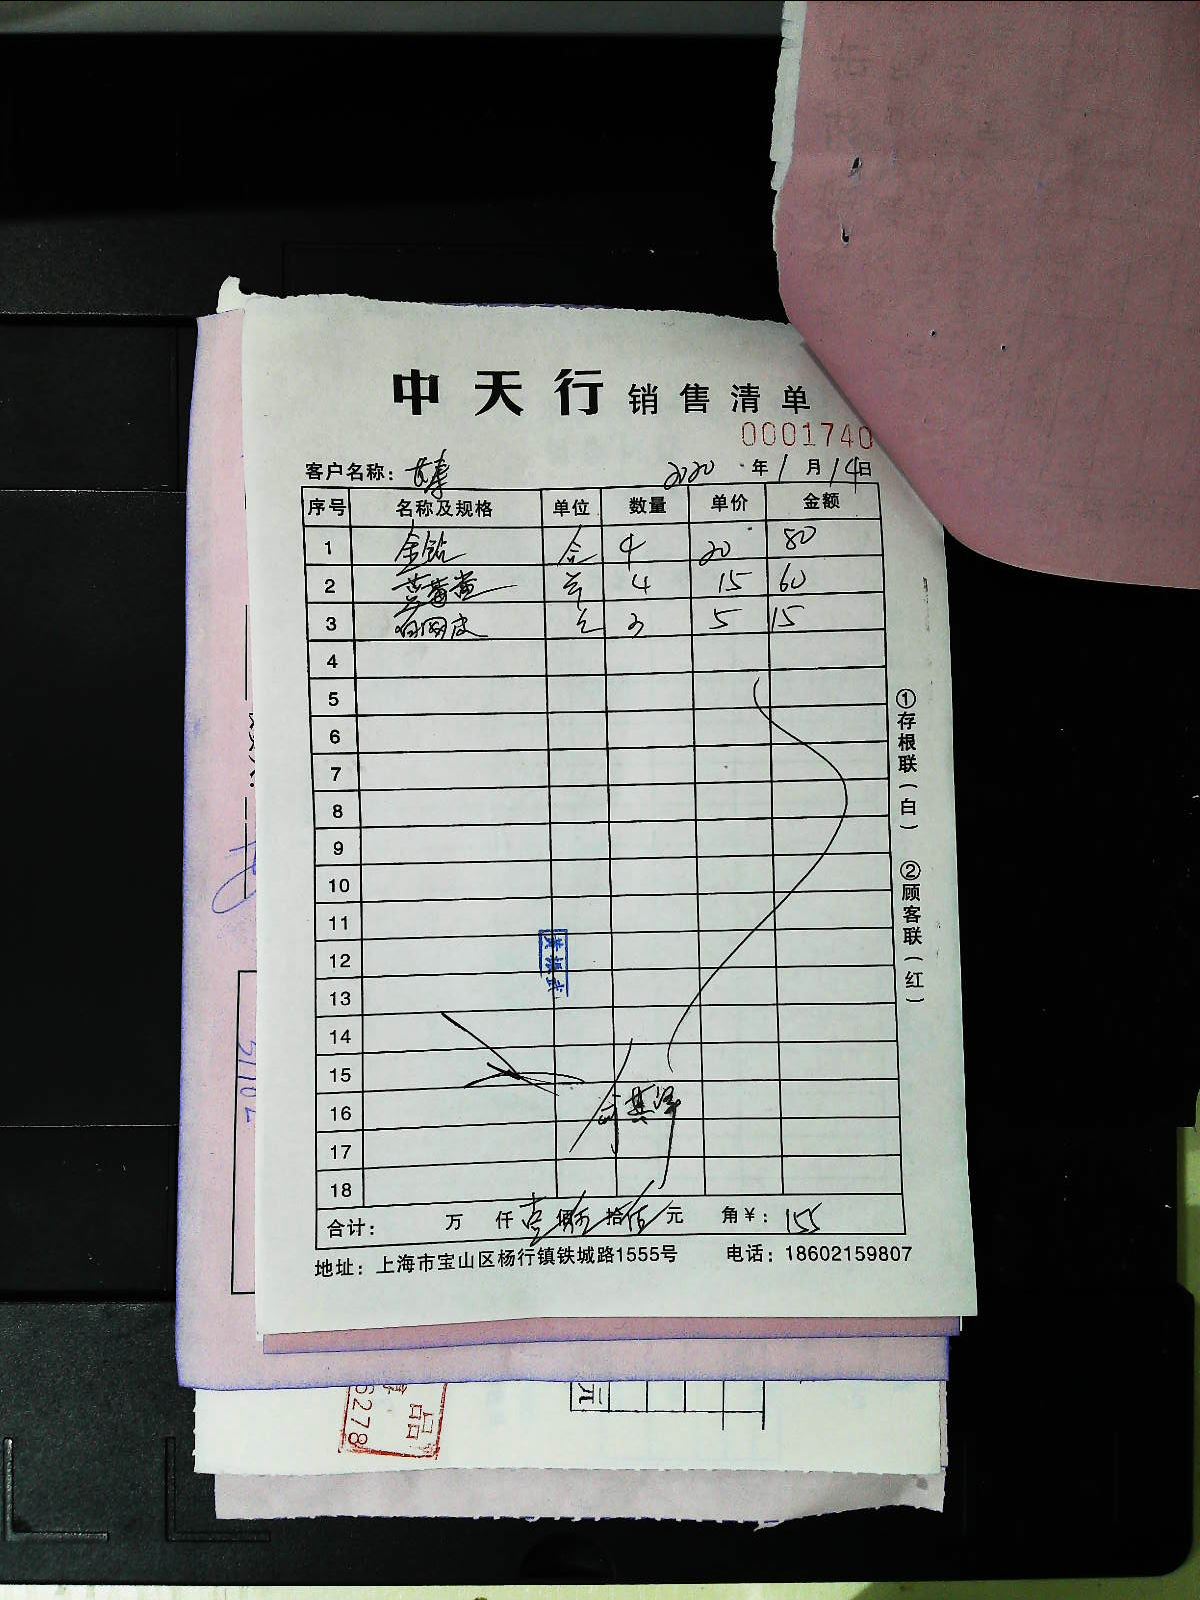 中天行 销售清单
0001740
客户名称： 2020 年 1 月 14 日
序号 名称及规格 单位 数量 单价 金额
1 金钻 合 4 20 80
2 4 15 60
3 白网皮 3 5 15
4
5
6
7
8
9
10
11
12
13
14
15
16
17
18
合计： 万 仟 壹 佰 伍 拾 伍 元 角 ¥： 155
地址：上海市宝山区杨行镇铁城路1555号 电话：18602159807
①存根联（白） ②顾客联（红）
51102
品
6278
元